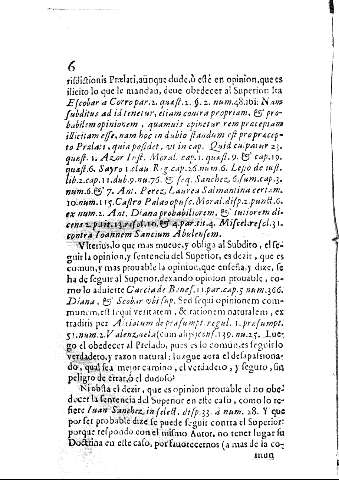 6
risdictionis Prælati, aunque dude, ò estè en opinion, que es
ilicito lo que le mandan, deue obedecer al Superior: Ita
Escobar à Corro par. 2. quæst. 2. §. 2. num. 48. ibi: Nam
subditus ad id tenetur, etiam contra propriam, & pro-
babilem opinionem, quamuis opinetur rem præceptam
illicitam esse, nam hoc in dubio standum est pro præcep-
to Prælati, quia possidet, vt in cap. Quid culpatur 23.
quæst. 1. Azor Inst. Moral. cap. 1. quæst. 9. & cap. 19.
quæst. 6. Sayro Clau. Reg. cap. 26. num. 6. Lesio de iust.
lib. 2. cap. 11. dub. 9. nu. 76. & seq. Sanchez, 6. sum. cap. 3.
num. 6. & 7. Ant. Perez, Laurea Salmantina certam.
10. num. 115. Castro Palao opusc. Moral. disp. 2. punct. 6.
ex num. 2. Ant. Diana probabiliorem, & tutiorem di-
cens 2. part. 13. resol. 10. & 4. par. tit. 4. Miscel. resol. 31.
contra Ioannem Sancium Abulensem.
Vlterius, lo que mas mueue, y obliga al Subdito, el se-
guir la opinion, y sentencia del Superior, es dezir, que es
comun, y mas prouable la opinion, que enseña, y dize, se
ha de seguir al Superior, dexando opinion prouable, co-
mo lo aduierte Garcia de Benef. 11. par. cap. 5. num. 366.
Diana, & Scobar vbi sup. Sed sequi opinionem com-
munem, est sequi veritatem, & rationem naturalem, ex
traditis per Alciatum de præsumpt. regul. 1. præsumpt.
51. num. 2. Valençuela (cum alijs) conf. 139. nu. 25. Lue-
go el obedecer al Prelado, pues es lo comun, es seguir lo
verdadero, y razon natural: luego aora el desapasiona-
do, qual sea mejor camino, el verdadero, y seguro, sin
peligro de errar, ò el dudoso?
Ni obsta el dezir, que es opinion probable el no obe-
decer la sentencia del Superior en este caso, como lo re-
fiere Iuan Sanchez, in select. disp. 33. à num. 28. Y que
por ser probable dize se puede seguir contra el Superior:
porque respondo con el mismo Autor, no tener lugar su
Doctrina en este caso, por fauorecernos (a mas de la co-
mun